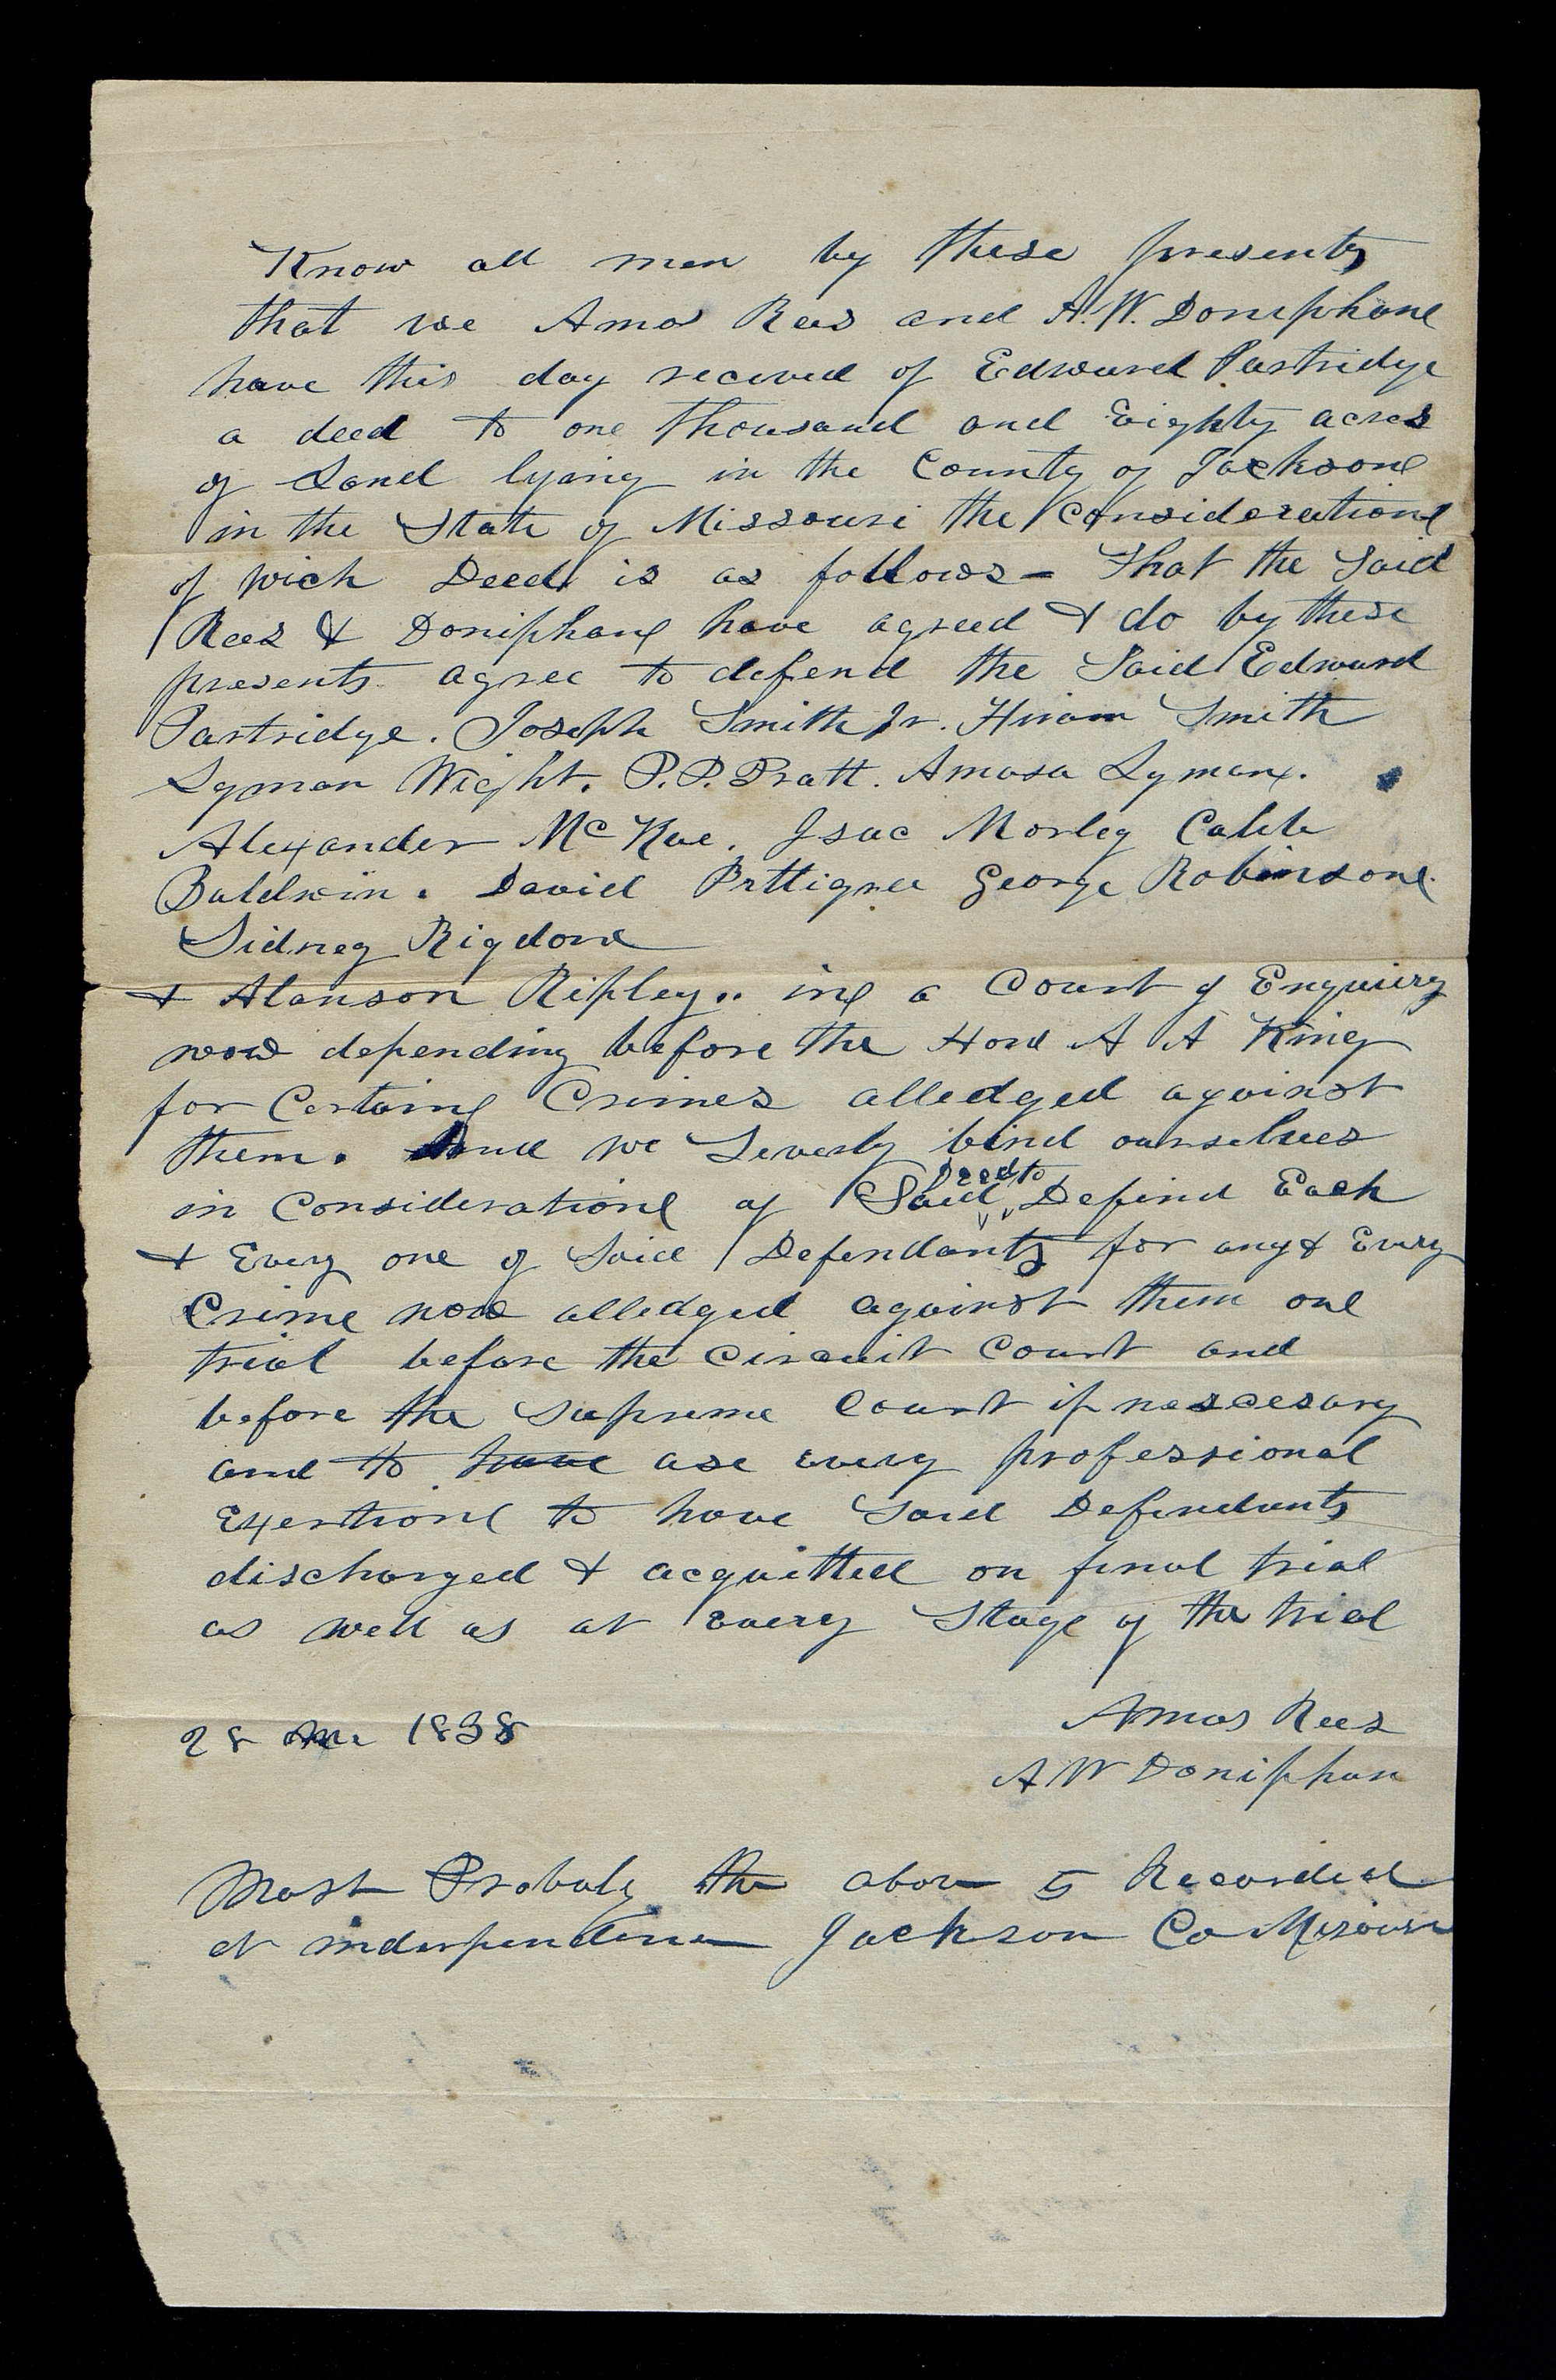 Know all men by these presents
that we Amos Rees and A. W. Doniphan
have this day received of Edward Partridge
a deed to one thousand and Eighty acres
of Land lying in the County of Jackson
in the State of Missouri the Consideration
of wich Deed is as follows - That the Said
Rees & Doniphan have agreed & do by these
presents agree to defend the Said Edward
Partridge. Joseph Smith Jr. Hiram Smith
Lyman Wight. P. P. Pratt. Amasa Lyman.
Alexander McRae. Isac Morley Caleb
Baldwin. David Pettigrew George Robinson.
Sidney Rigdon
& Alanson Ripley.. in a Court of Enquiery
now depending before the Hon A A King
for Certain Crimes alledged against
them. And we Severly bind ourselves
in Consideration of Said Deed to Defind Each
& Every one of Said Defendants for any & Every
Crime now alledged against them on
trial before the Circuit Court and
before the Supreme Court if nescesary
and to have use every professional
Exertion to have Said Defendants
discharged & acquitted on final trial
as well as at Every Stage of the trial
28 1838
Amos Rees
A W Doniphan
Most Probaly the above is Recorded
at independence Jackson Co Missouri